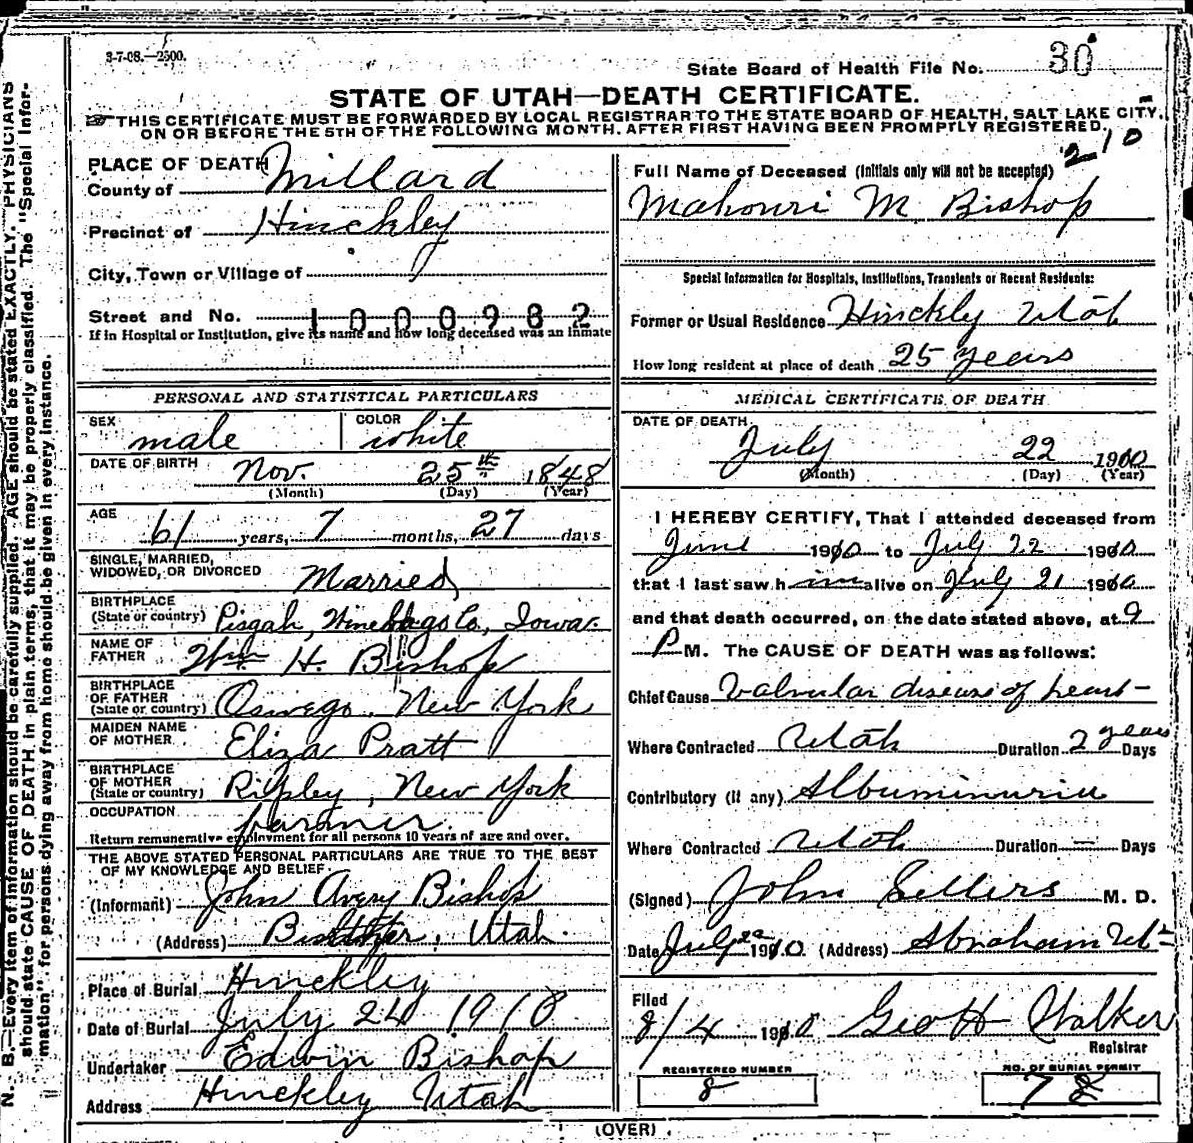 3-7-08.—2500.
State Board of Health File No. 30
STATE OF UTAH—DEATH CERTIFICATE.
THIS CERTIFICATE MUST BE FORWARDED BY LOCAL REGISTRAR TO THE STATE BOARD OF HEALTH, SALT LAKE CITY,
ON OR BEFORE THE 5TH OF THE FOLLOWING MONTH, AFTER FIRST HAVING BEEN PROMPTLY REGISTERED.
210
PLACE OF DEATH
County of Millard
Precinct of Hinckley
City, Town or Village of
Street and No. 1000982
If in Hospital or Institution, give its name and how long deceased was an inmate
PERSONAL AND STATISTICAL PARTICULARS
SEX male COLOR white
DATE OF BIRTH Nov. 25th 1848
(Month) (Day) (Year)
AGE 61 years, 7 months, 27 days
SINGLE, MARRIED,
WIDOWED, OR DIVORCED Married
BIRTHPLACE
(State or country) Pisgah, Winebago Co., Iowa.
NAME OF
FATHER Wm H. Bishop
BIRTHPLACE
OF FATHER
(State or country) Oswego, New York
MAIDEN NAME
OF MOTHER Eliza Pratt
BIRTHPLACE
OF MOTHER
(State or country) Ripley, New York
OCCUPATION farmer.
Return remunerative employment for all persons 10 years of age and over.
THE ABOVE STATED PERSONAL PARTICULARS ARE TRUE TO THE BEST
OF MY KNOWLEDGE AND BELIEF.
(Informant) John Avery Bishop
(Address) Utah.
Place of Burial Hinckley
Date of Burial July 24 1910
Undertaker Edwin Bishop
Address Hinckley Utah
Full Name of Deceased (Initials only will not be accepted)
Mahonri M. Bishop
Special Information for Hospitals, Institutions, Transients or Recent Residents:
Former or Usual Residence Hinckley Utah
How long resident at place of death 25 years
MEDICAL CERTIFICATE OF DEATH
DATE OF DEATH
July 22 1910
(Month) (Day) (Year)
I HEREBY CERTIFY, That I attended deceased from
June 1910 to July 22 1910
that I last saw him alive on July 21 1910
and that death occurred, on the date stated above, at 9
P M. The CAUSE OF DEATH was as follows:
Chief Cause Valvular disease of heart
Where Contracted Utah Duration 2 years Days
Contributory (if any) Albuminuria
Where Contracted Utah Duration — Days
(Signed) John Sellers M. D.
Date July 22 1910 (Address) Abraham Ut
Filed
8/4 1910 Geo H Walker
Registrar
REGISTERED NUMBER
8
NO. OF BURIAL PERMIT
78
(OVER)
N. B.—Every item of information should be carefully supplied. AGE should be stated EXACTLY. PHYSICIANS
should state CAUSE OF DEATH in plain terms, that it may be properly classified. The "Special Infor-
mation" for persons dying away from home should be given in every instance.